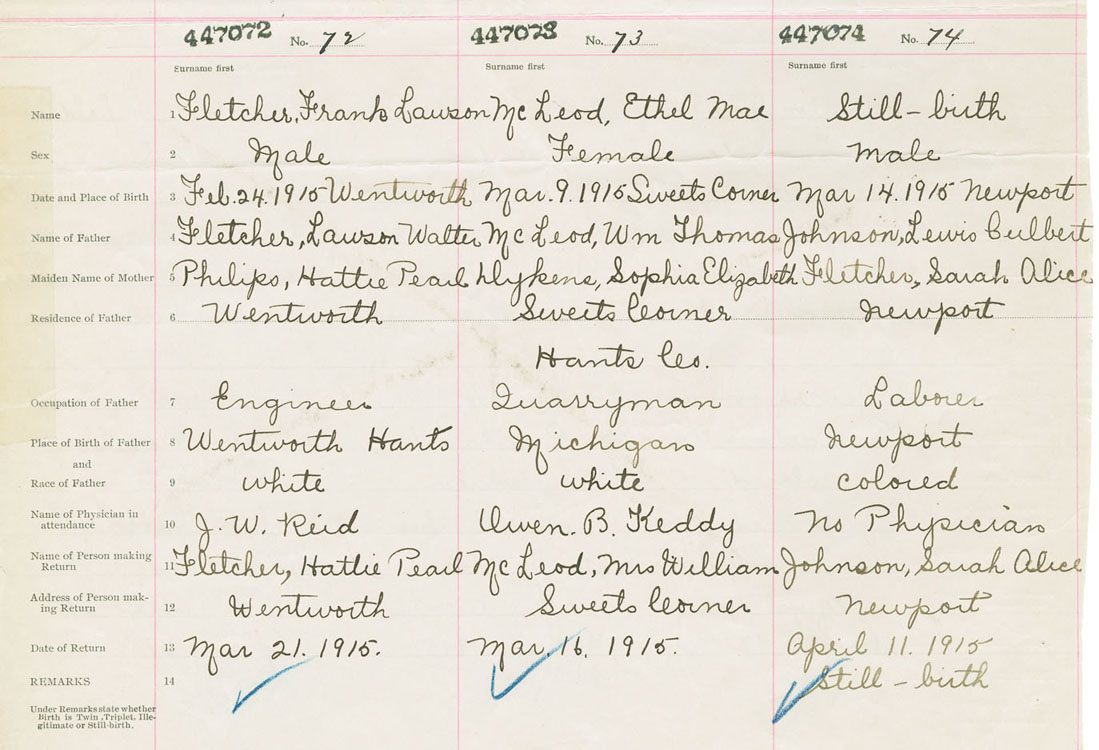 447072 No. 72 447073 No. 73 447074 No. 74
Surname first Surname first Surname first
Name 1 Fletcher, Frank Lawson Mc Leod, Ethel Mae Still-birth
Sex 2 Male Female male
Date and Place of Birth 3 Feb. 24. 1915 Wentworth Mar. 9. 1915 Sweets Corner Mar 14. 1915 Newport
Name of Father 4 Fletcher, Lawson Walter Mc Leod, Wm Thomas Johnson, Lewis Culbert
Maiden Name of Mother 5 Philips, Hattie Pearl Dykens, Sophia Elizabeth Fletcher, Sarah Alice
Residence of Father 6 Wentworth Sweets Corner Newport
Hants Co.
Occupation of Father 7 Engineer Quarryman Laborer
Place of Birth of Father 8 Wentworth Hants Michigan Newport
and
Race of Father 9 white white colored
Name of Physician in
attendance 10 J. W. Reid Owen. B. Keddy No Physician
Name of Person making
Return 11 Fletcher, Hattie Pearl Mc Leod, Mrs William Johnson, Sarah Alice
Address of Person mak-
ing Return 12 Wentworth Sweets Corner Newport
Date of Return 13 Mar 21. 1915. Mar. 16. 1915. April 11. 1915
REMARKS 14 Still-birth
Under Remarks state whether
Birth is Twin, Triplet, Ille-
gitimate or Still-birth.